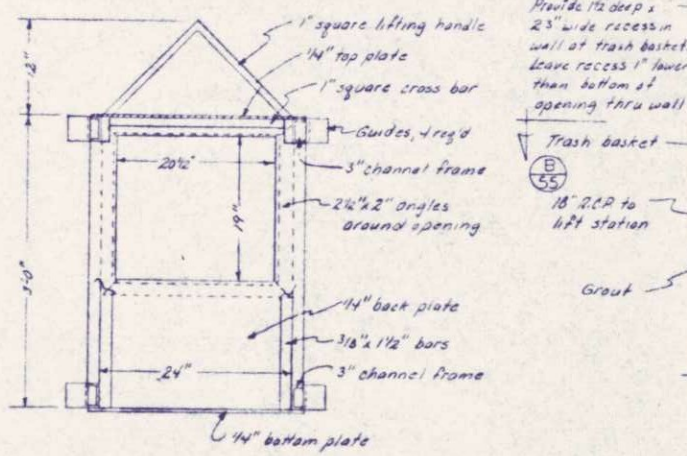 1" square lifting handle
1/4" top plate
1" square cross bar
Guides, 4 req'd
3" channel frame
2 1/2" x 2" angles
around opening
1/4" back plate
3/8" x 1 1/2" bars
3" channel frame
1/4" bottom plate
12"
3'-0"
20 1/2"
19"
24"
Provide 1 1/2 deep x
23" wide recess in
wall at trash basket
Leave recess 1" lower
than bottom of
opening thru wall
Trash basket
B
55
18" R.C.P. to
lift station
Grout